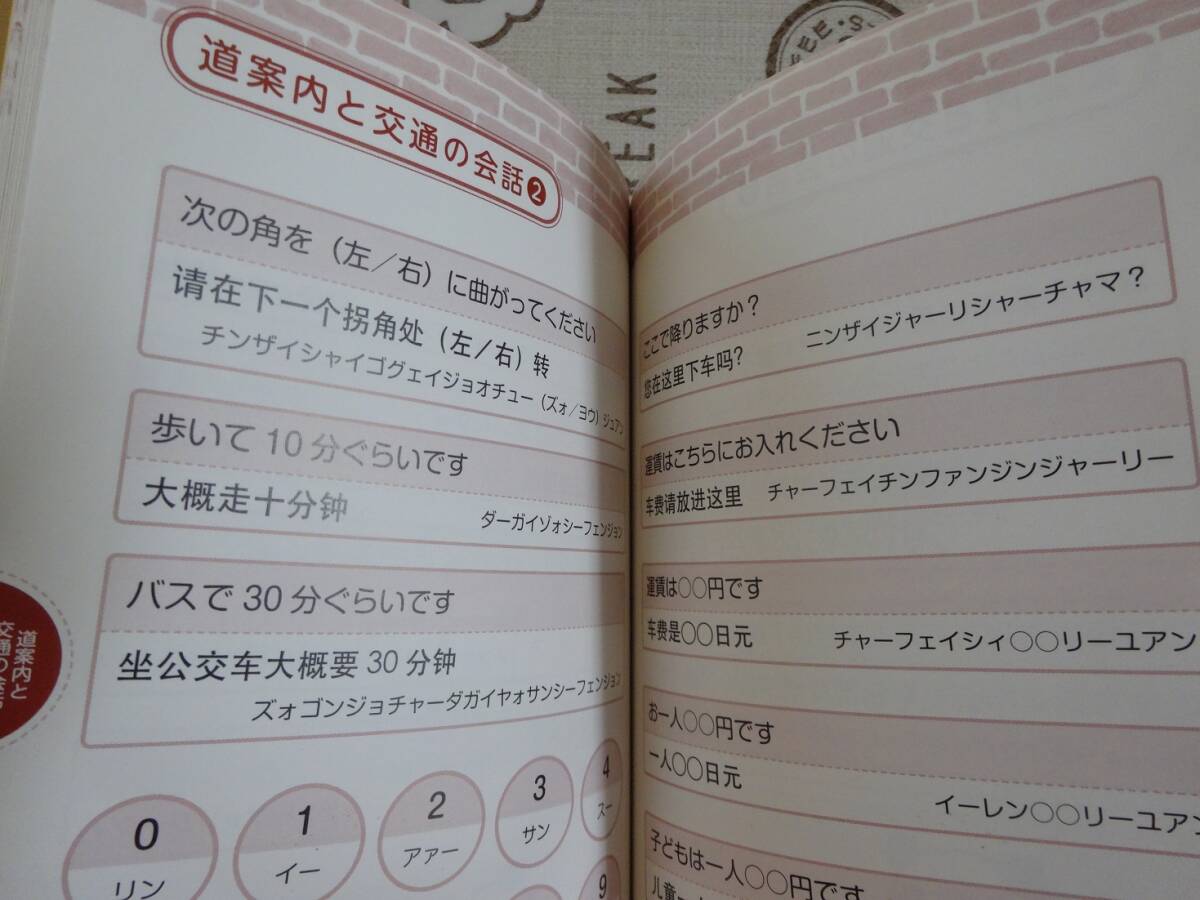 道案内と交通の会話❷
次の角を（左／右）に曲がってください
请在下一个拐角处（左／右）转
チンザイシャイゴグェイジョオチュー（ズォ／ヨウ）ジュアン
歩いて10分ぐらいです
大概走十分钟
ダーガイゾォシーフェンジョン
バスで30分ぐらいです
坐公交车大概要30分钟
ズォゴンジョチャーダガイヤォサンシーフェンジョン
0
リン
1
イー
2
アァー
3
サン
4
スー
9
道案内と
交通の会話
ここで降りますか？
您在这里下车吗？
ニンザイジャーリシャーチャマ？
運賃はこちらにお入れください
车费请放进这里
チャーフェイチンファンジンジャーリー
運賃は○○円です
车费是○○日元
チャーフェイシィ○○リーユアン
お一人○○円です
一人○○日元
イーレン○○リーユアン
子どもは一人○○円です
儿童一
EAK
EE.S